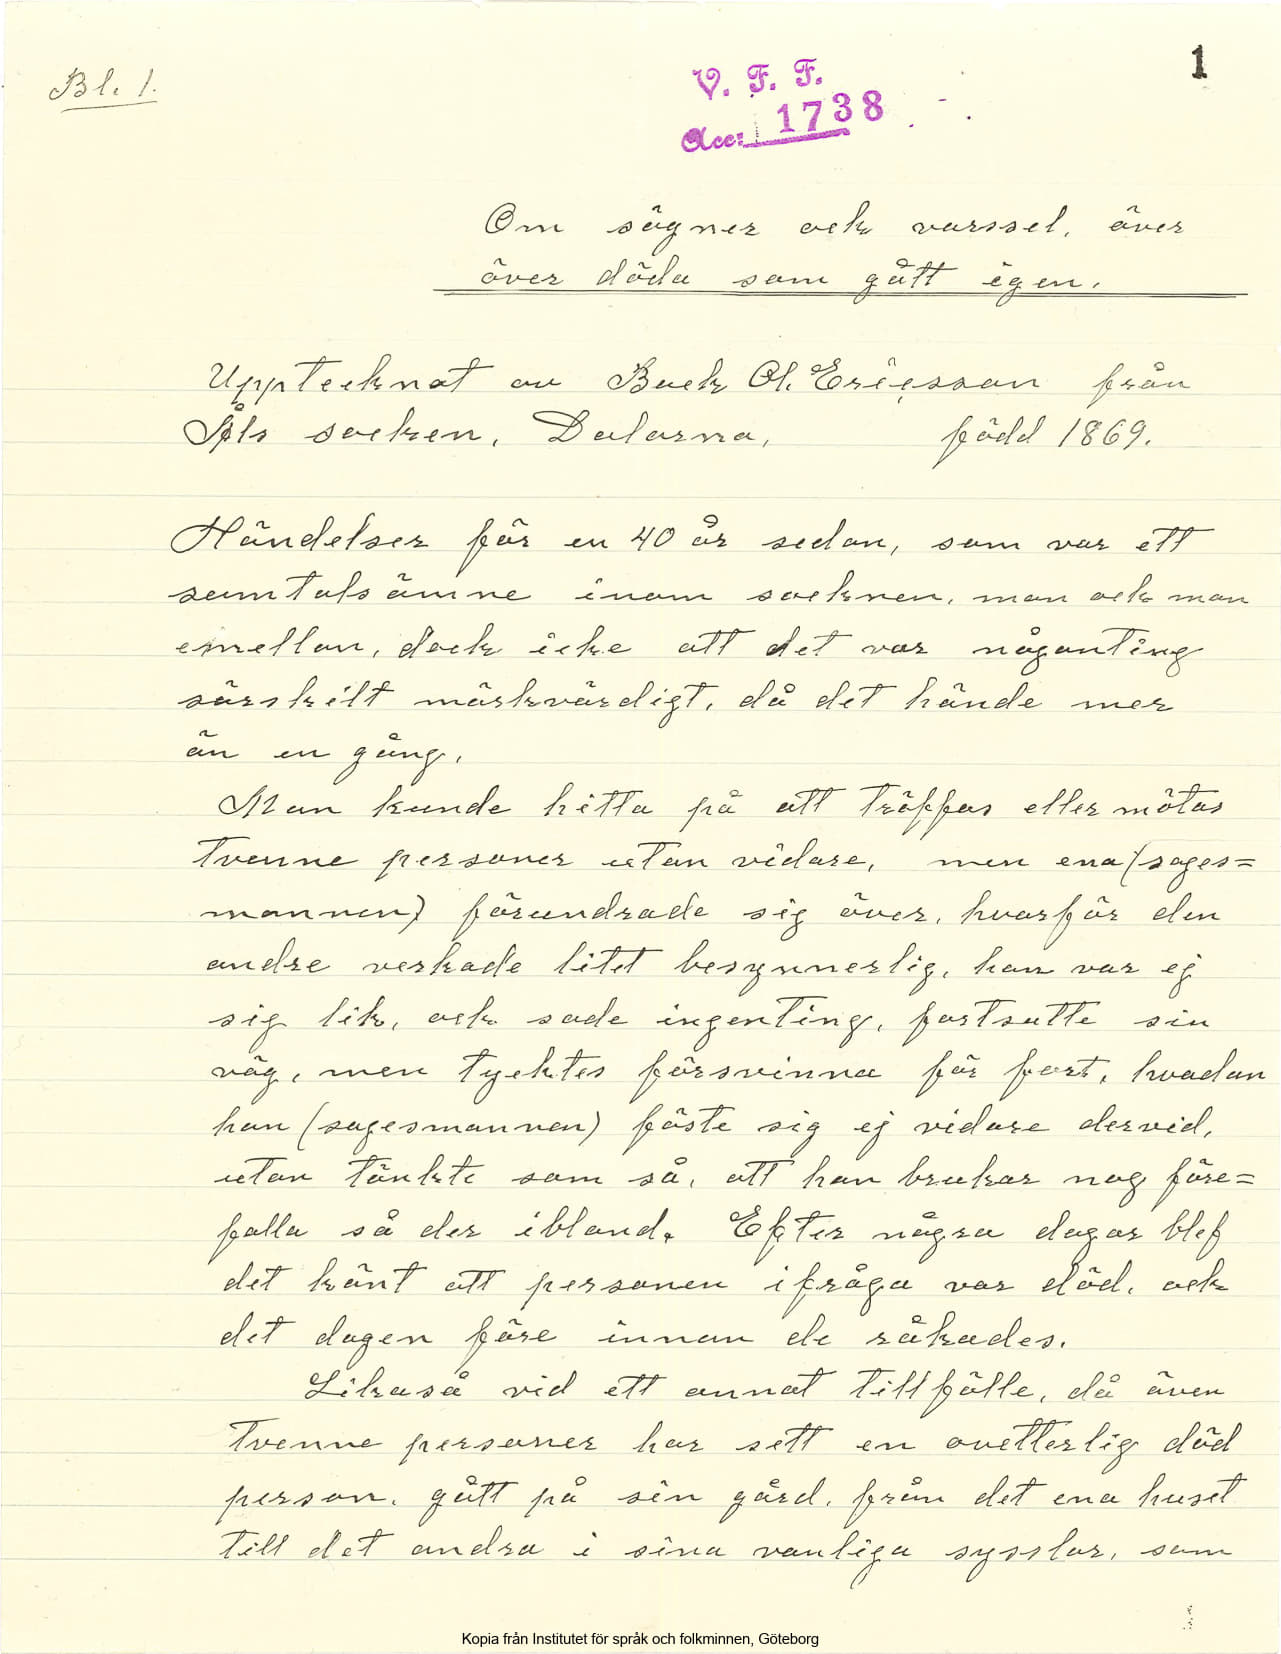 Bl. 1.
1
V. F. F.
Acc: 1738
Om sägner ock varssel, över
över döda som gått igen.
Upptecknat av Back Ol. Ericsson från
Åls socken, Dalarna, född 1869.
Händelser för en 40 år sedan, som var ett
samtalsämne inom socknen, man ock man
emellan, dock icke att det var någonting
särskilt märkvärdigt, då det hände mer
än en gång.
Man kunde hitta på att träffas eller mötas
tvenne personer utan vidare, men ena (sages=
mannen) förundrade sig över, hvarför den
andre verkade litet besynnerlig, han var ej
sig lik, ock sade ingenting, fortsatte sin
väg, men tycktes försvinna för fort, hvadan
han (sagesmannen) fäste sig ej vidare dervid,
utan tänkte som så, att han brukar nog före=
falla så der ibland. Efter några dagar blef
det känt att personen ifråga var död, ock
det dagen före innan de råkades.
Likaså vid ett annat tillfälle, då även
tvenne personer har sett en ovetterlig död
person, gått på sin gård, från det ena huset
till det andra i sina vanliga sysslor, som
Kopia från Institutet för språk och folkminnen, Göteborg